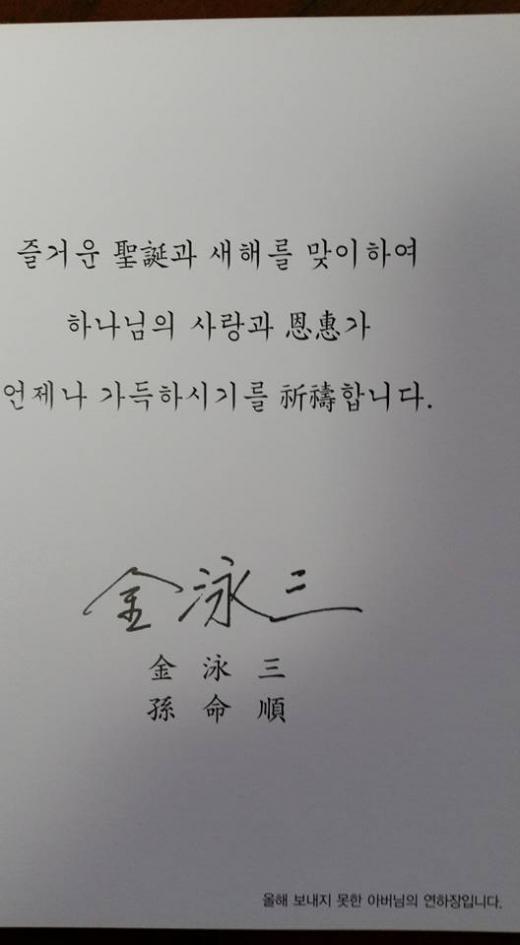 즐거운 聖誕과 새해를 맞이하여
하나님의 사랑과 恩惠가
언제나 가득하시기를 祈禱합니다.
金泳三
金 泳 三
孫 命 順
올해 보내지 못한 아버님의 연하장입니다.